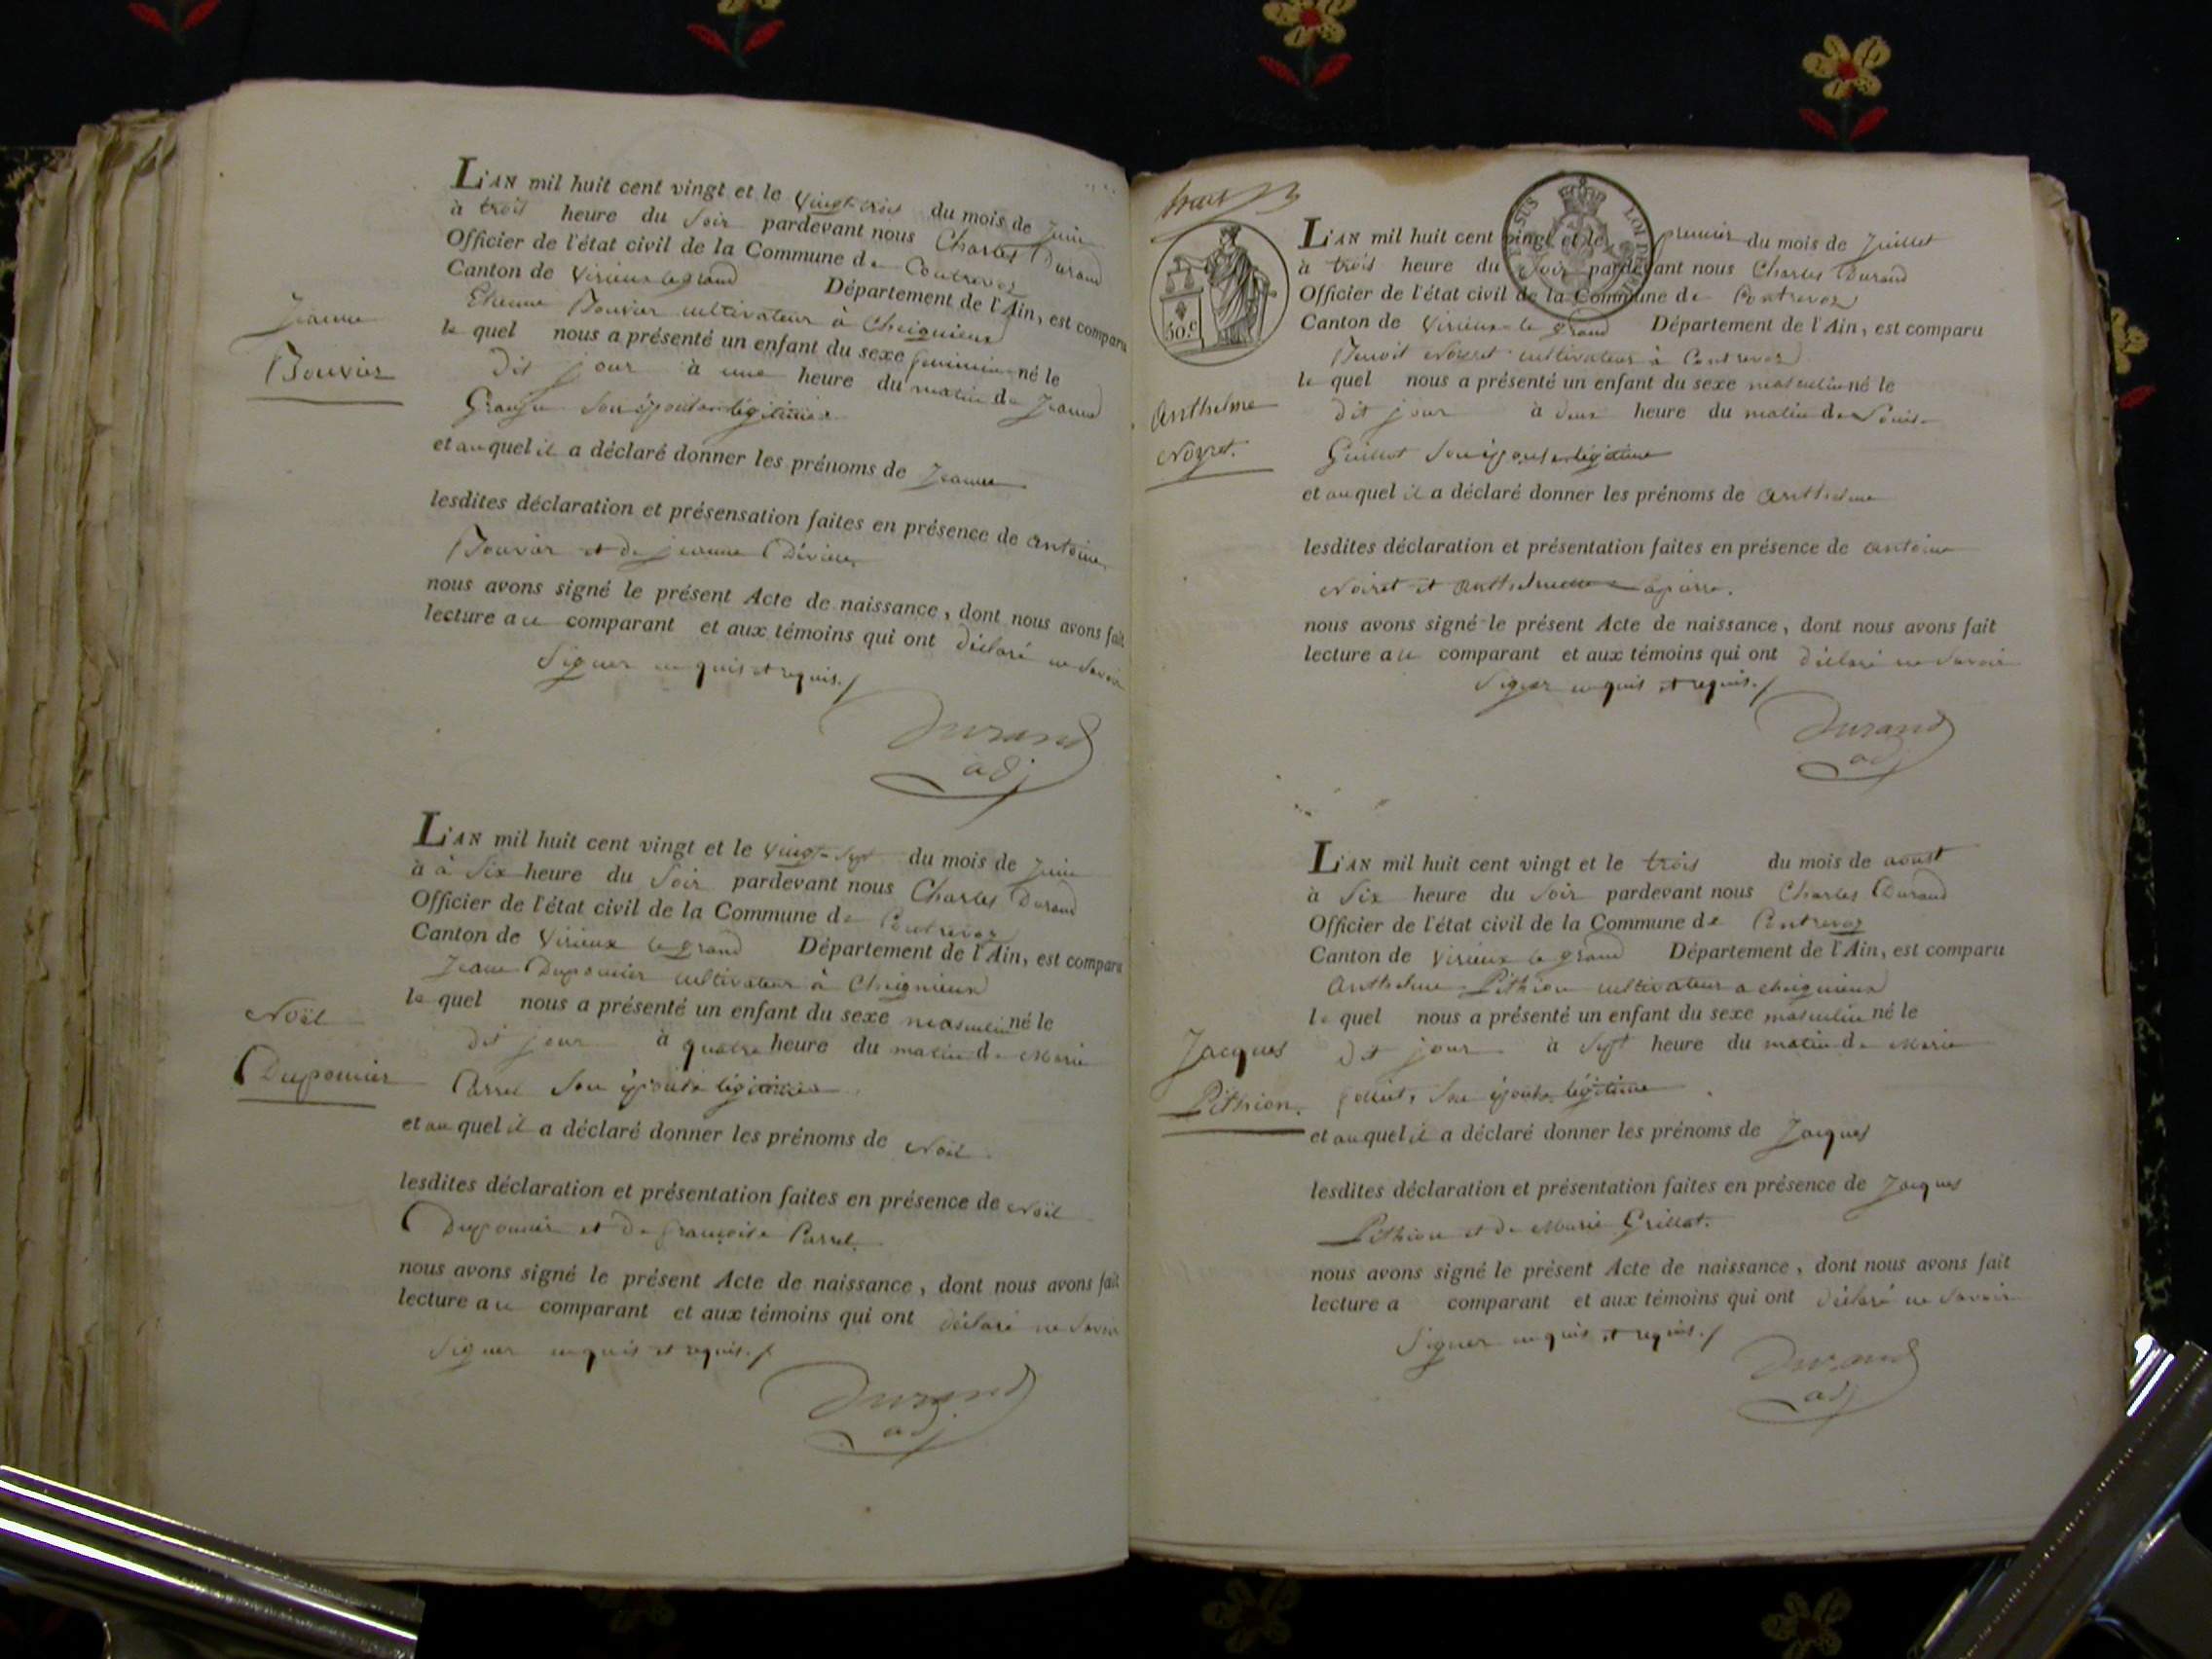 Jeanne
Bouvier
L'AN mil huit cent vingt et le vingt-trois du mois de Juin
à trois heure du Soir pardevant nous Charles Durand
Officier de l'état civil de la Commune de Contrevoz
Canton de Virieux le grand Département de l'Ain, est comparu
Etienne Bouvier cultivateur à Cheignieux
le quel nous a présenté un enfant du sexe feminin né le
Dit jour à une heure du matin de Jeanne
son épouse légitime
et au quel il a déclaré donner les prénoms de Jeanne
lesdites déclaration et présensation faites en présence de antoine
Bouvier et de jeanne
nous avons signé le présent Acte de naissance, dont nous avons fait
lecture au comparant et aux témoins qui ont déclaré ne Savoir
Signer enquis et requis./
Durand
adj
Noël
Duponier
L'AN mil huit cent vingt et le vingt-sept du mois de Juin
à à Six heure du Soir pardevant nous Charles Durand
Officier de l'état civil de la Commune de Contrevoz
Canton de Virieux le grand Département de l'Ain, est comparu
Jean Duponier cultivateur à Cheignieux
le quel nous a présenté un enfant du sexe masculin né le
Dit jour à quatre heure du matin de Marie
Carrel Son épouse légitime
et au quel il a déclaré donner les prénoms de Noël
lesdites déclaration et présentation faites en présence de Noël
Duponier et de françoise Carrel.
nous avons signé le présent Acte de naissance, dont nous avons fait
lecture au comparant et aux témoins qui ont déclaré ne Savoir
Signer enquis et requis./
Durand
adj
50.c
Anthelme
Noyret.
L'AN mil huit cent vingt et le premier du mois de Juillet
à trois heure du Soir pardevant nous Charles Durand
Officier de l'état civil de la Commune de Contrevoz
Canton de Virieux le grand Département de l'Ain, est comparu
Benoit Noyret cultivateur à Contrevoz
le quel nous a présenté un enfant du sexe masculin né le
dit jour à deux heure du matin de Louise
Guillot Son épouse légitime
et au quel il a déclaré donner les prénoms de anthelme
lesdites déclaration et présentation faites en présence de antoine
Noiret et
nous avons signé le présent Acte de naissance, dont nous avons fait
lecture au comparant et aux témoins qui ont déclaré ne Savoir
Signer enquis et requis./
Durand
adj
Jacques
Pithion.
L'AN mil huit cent vingt et le trois du mois de aoust
à Six heure du Soir pardevant nous Charles Durand
Officier de l'état civil de la Commune de Contrevoz
Canton de Virieux le grand Département de l'Ain, est comparu
Anthelme Pithion cultivateur a cheignieux
le quel nous a présenté un enfant du sexe masculin né le
Dit jour à Sept heure du matin de Marie
Son épouse légitime
et au quel il a déclaré donner les prénoms de Jacques
lesdites déclaration et présentation faites en présence de Jacques
Pithion et de Marie Grillat.
nous avons signé le présent Acte de naissance, dont nous avons fait
lecture a comparant et aux témoins qui ont déclaré ne Savoir
Signer enquis et requis./
Durand
adj